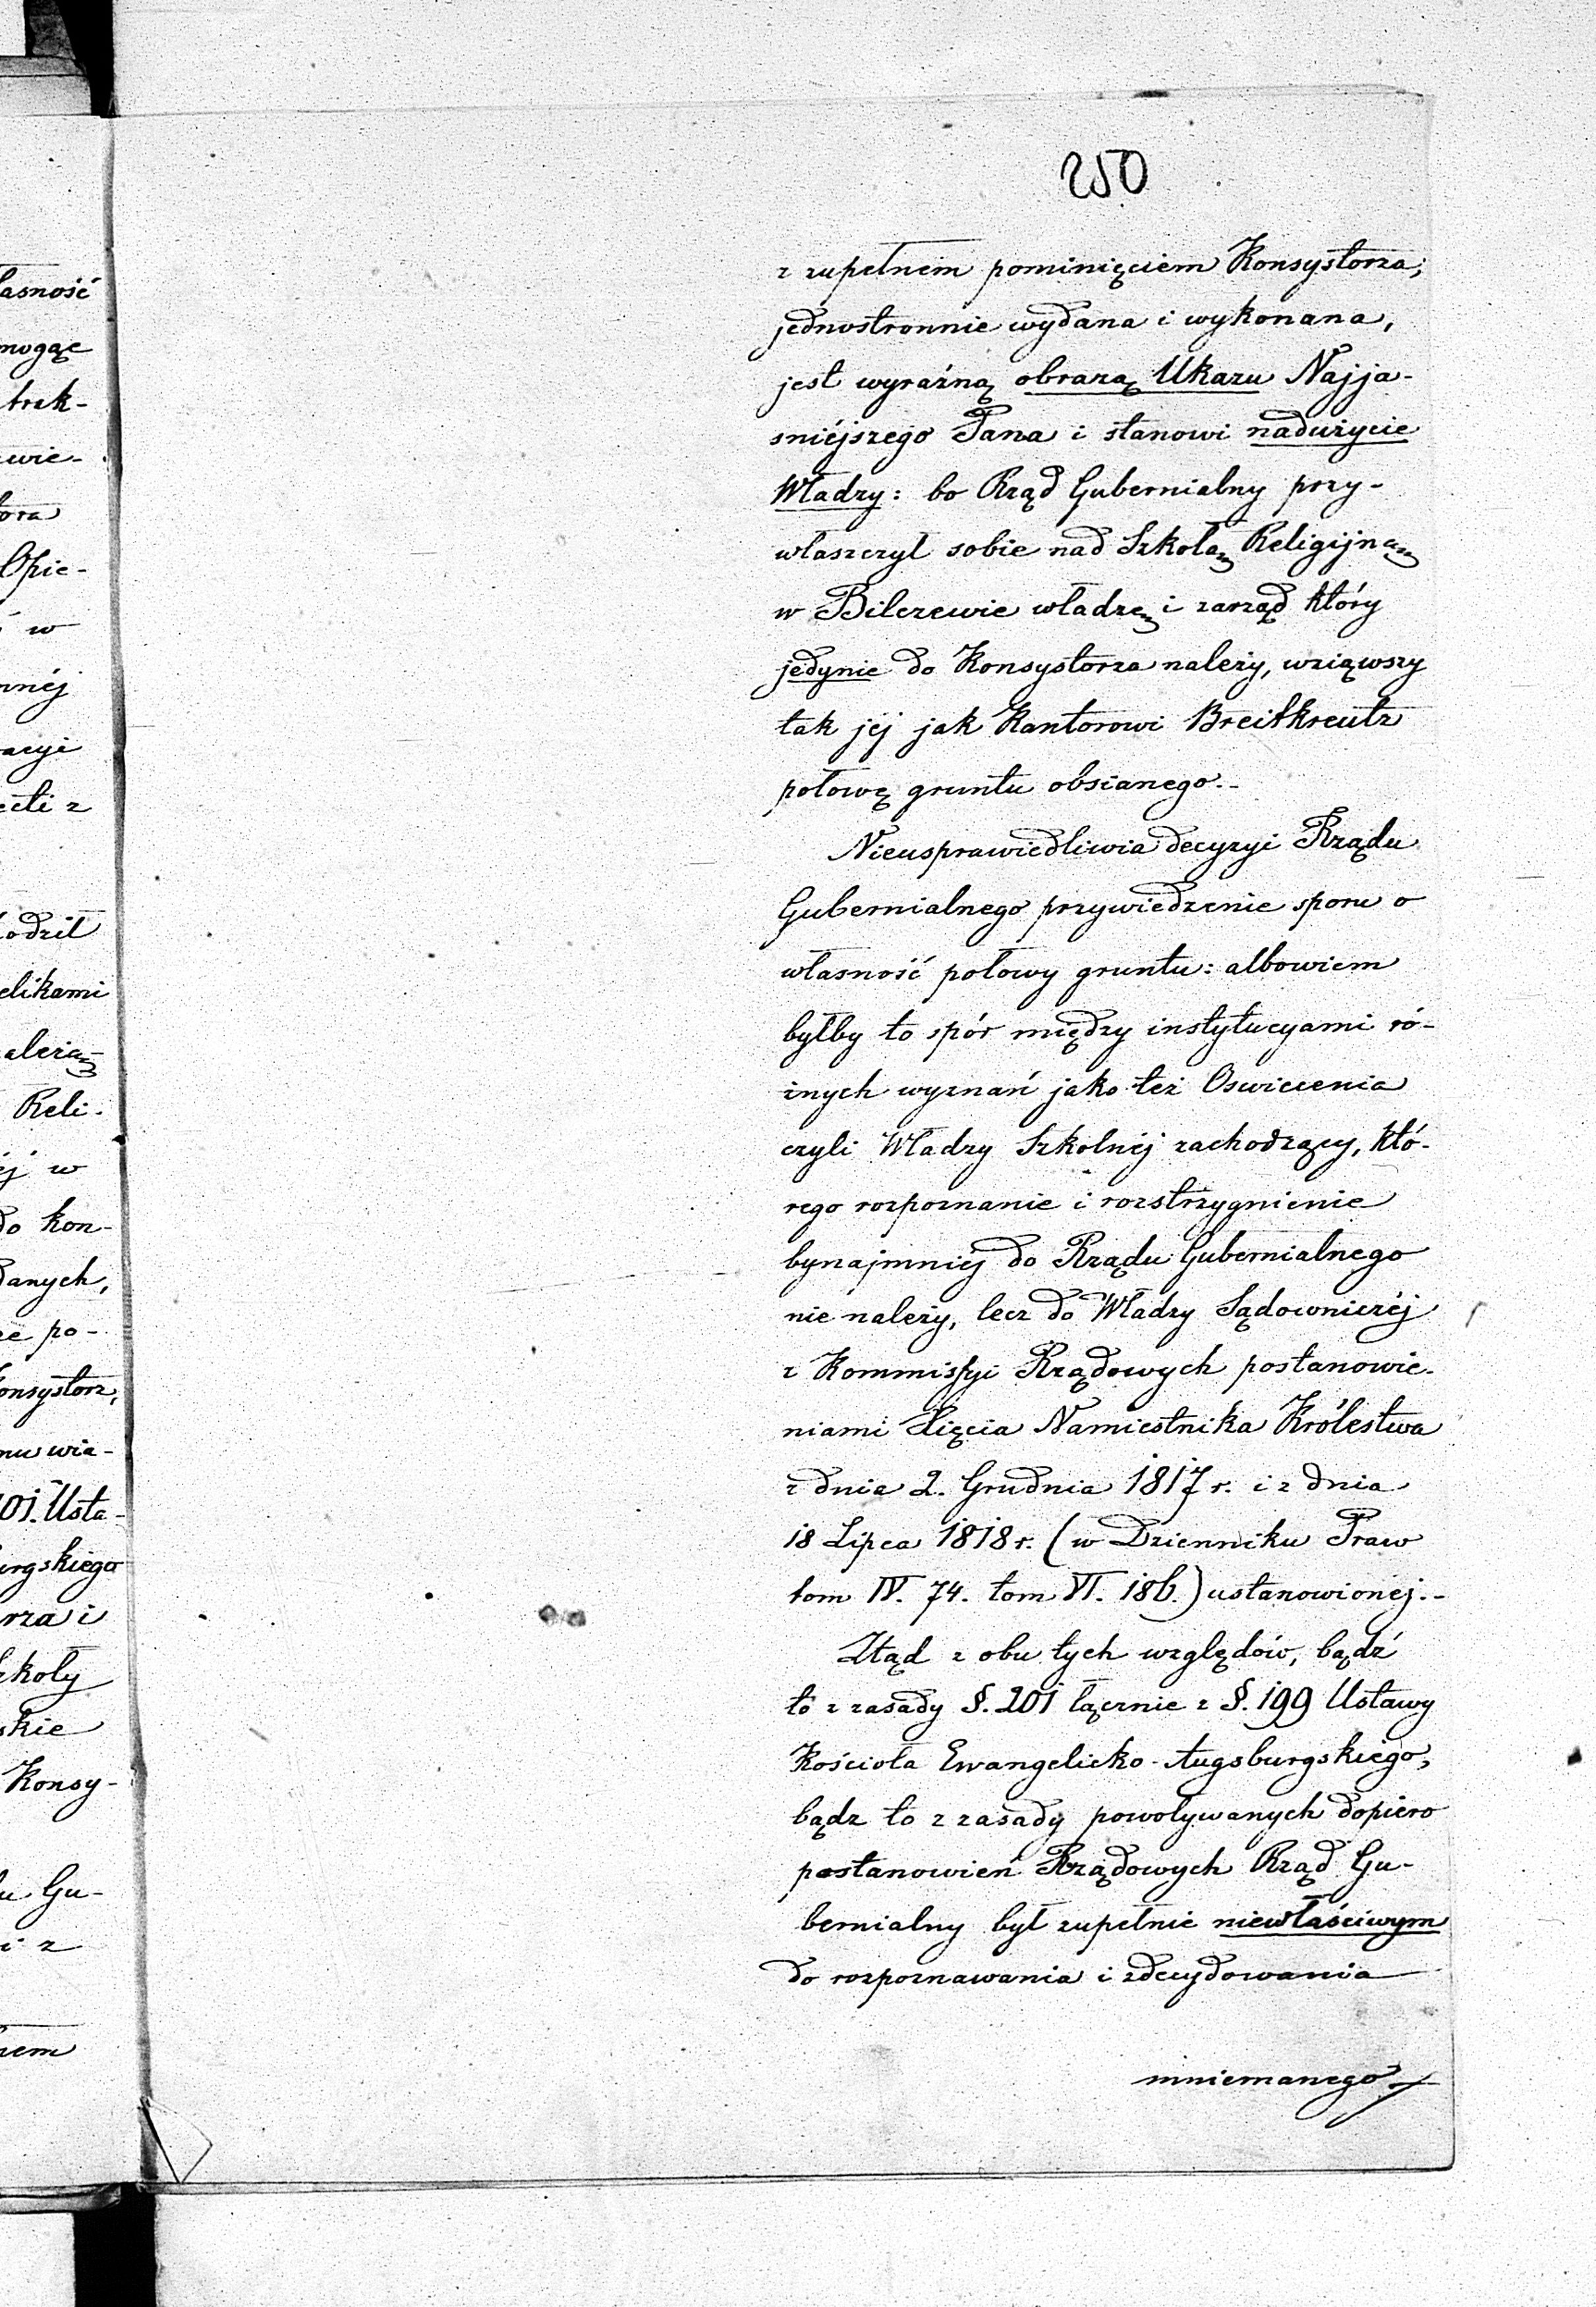 250
z zupełnem pominięciem Konsystorza,
jednostronnie wydana i wykonana,
jest wyraźną obrazą Ukazu Najja-
sniéjszego Pana i stanowi nadużycie
Władzy: bo Rząd Gubernialny przy-
właszczył sobie nad Szkołą Religijną
w Bilczewie władzę i zarząd który
jedynie do Konsystorza należy, wziąwszy
tak jéj jak Kantorowi Breitkreutz
połowę gruntu obsianego.-
Nieusprawiedliwia decyzyi Rządu
Gubernialnego przywiedzenie sporu o
własność połowy gruntu: albowiem
byłby to spór między instytucyami ró-
żnych wyznań jako też Oswiecenia
czyli Władzy Szkolnéj zachodzący, któ-
rego rozpoznanie i rozstrzygnienie
bynajmniéj do Rządu Gubernialnego
nie należy, lecz do Władzy Sądowniczéj
z Kommissyi Rządowych postanowie-
niami Xięcia Namiestnika Królestwa
z dnia 2. Grudnia 1817 r. i z dnia
18 Lipca 1818 r. (w Dzienniku Praw
tom IV. 74. tom VI. 186.) ustanowionej.-
Ztąd z obu tych względów, bądź
to z zasady §. 201 łącznie z §. 199 Ustawy
Kościoła Ewangelicko-Augsburgskiego,
bądz to z zasady powoływanych dopiero
postanowień Rządowych Rząd Gu-
bernialny był zupełnie niewłaściwym
do rozpoznawania i zdecydowania
mniemanego
lasność
mogąc
trak-
wie-
Opie-
w
acyi
odził
elikami
Reli-
w
do kon-
danych,
po-
onsystorz,
wia-
Usta-
urgskiego
rza i
zkoły
skie
Konsy-
Gu-
i z